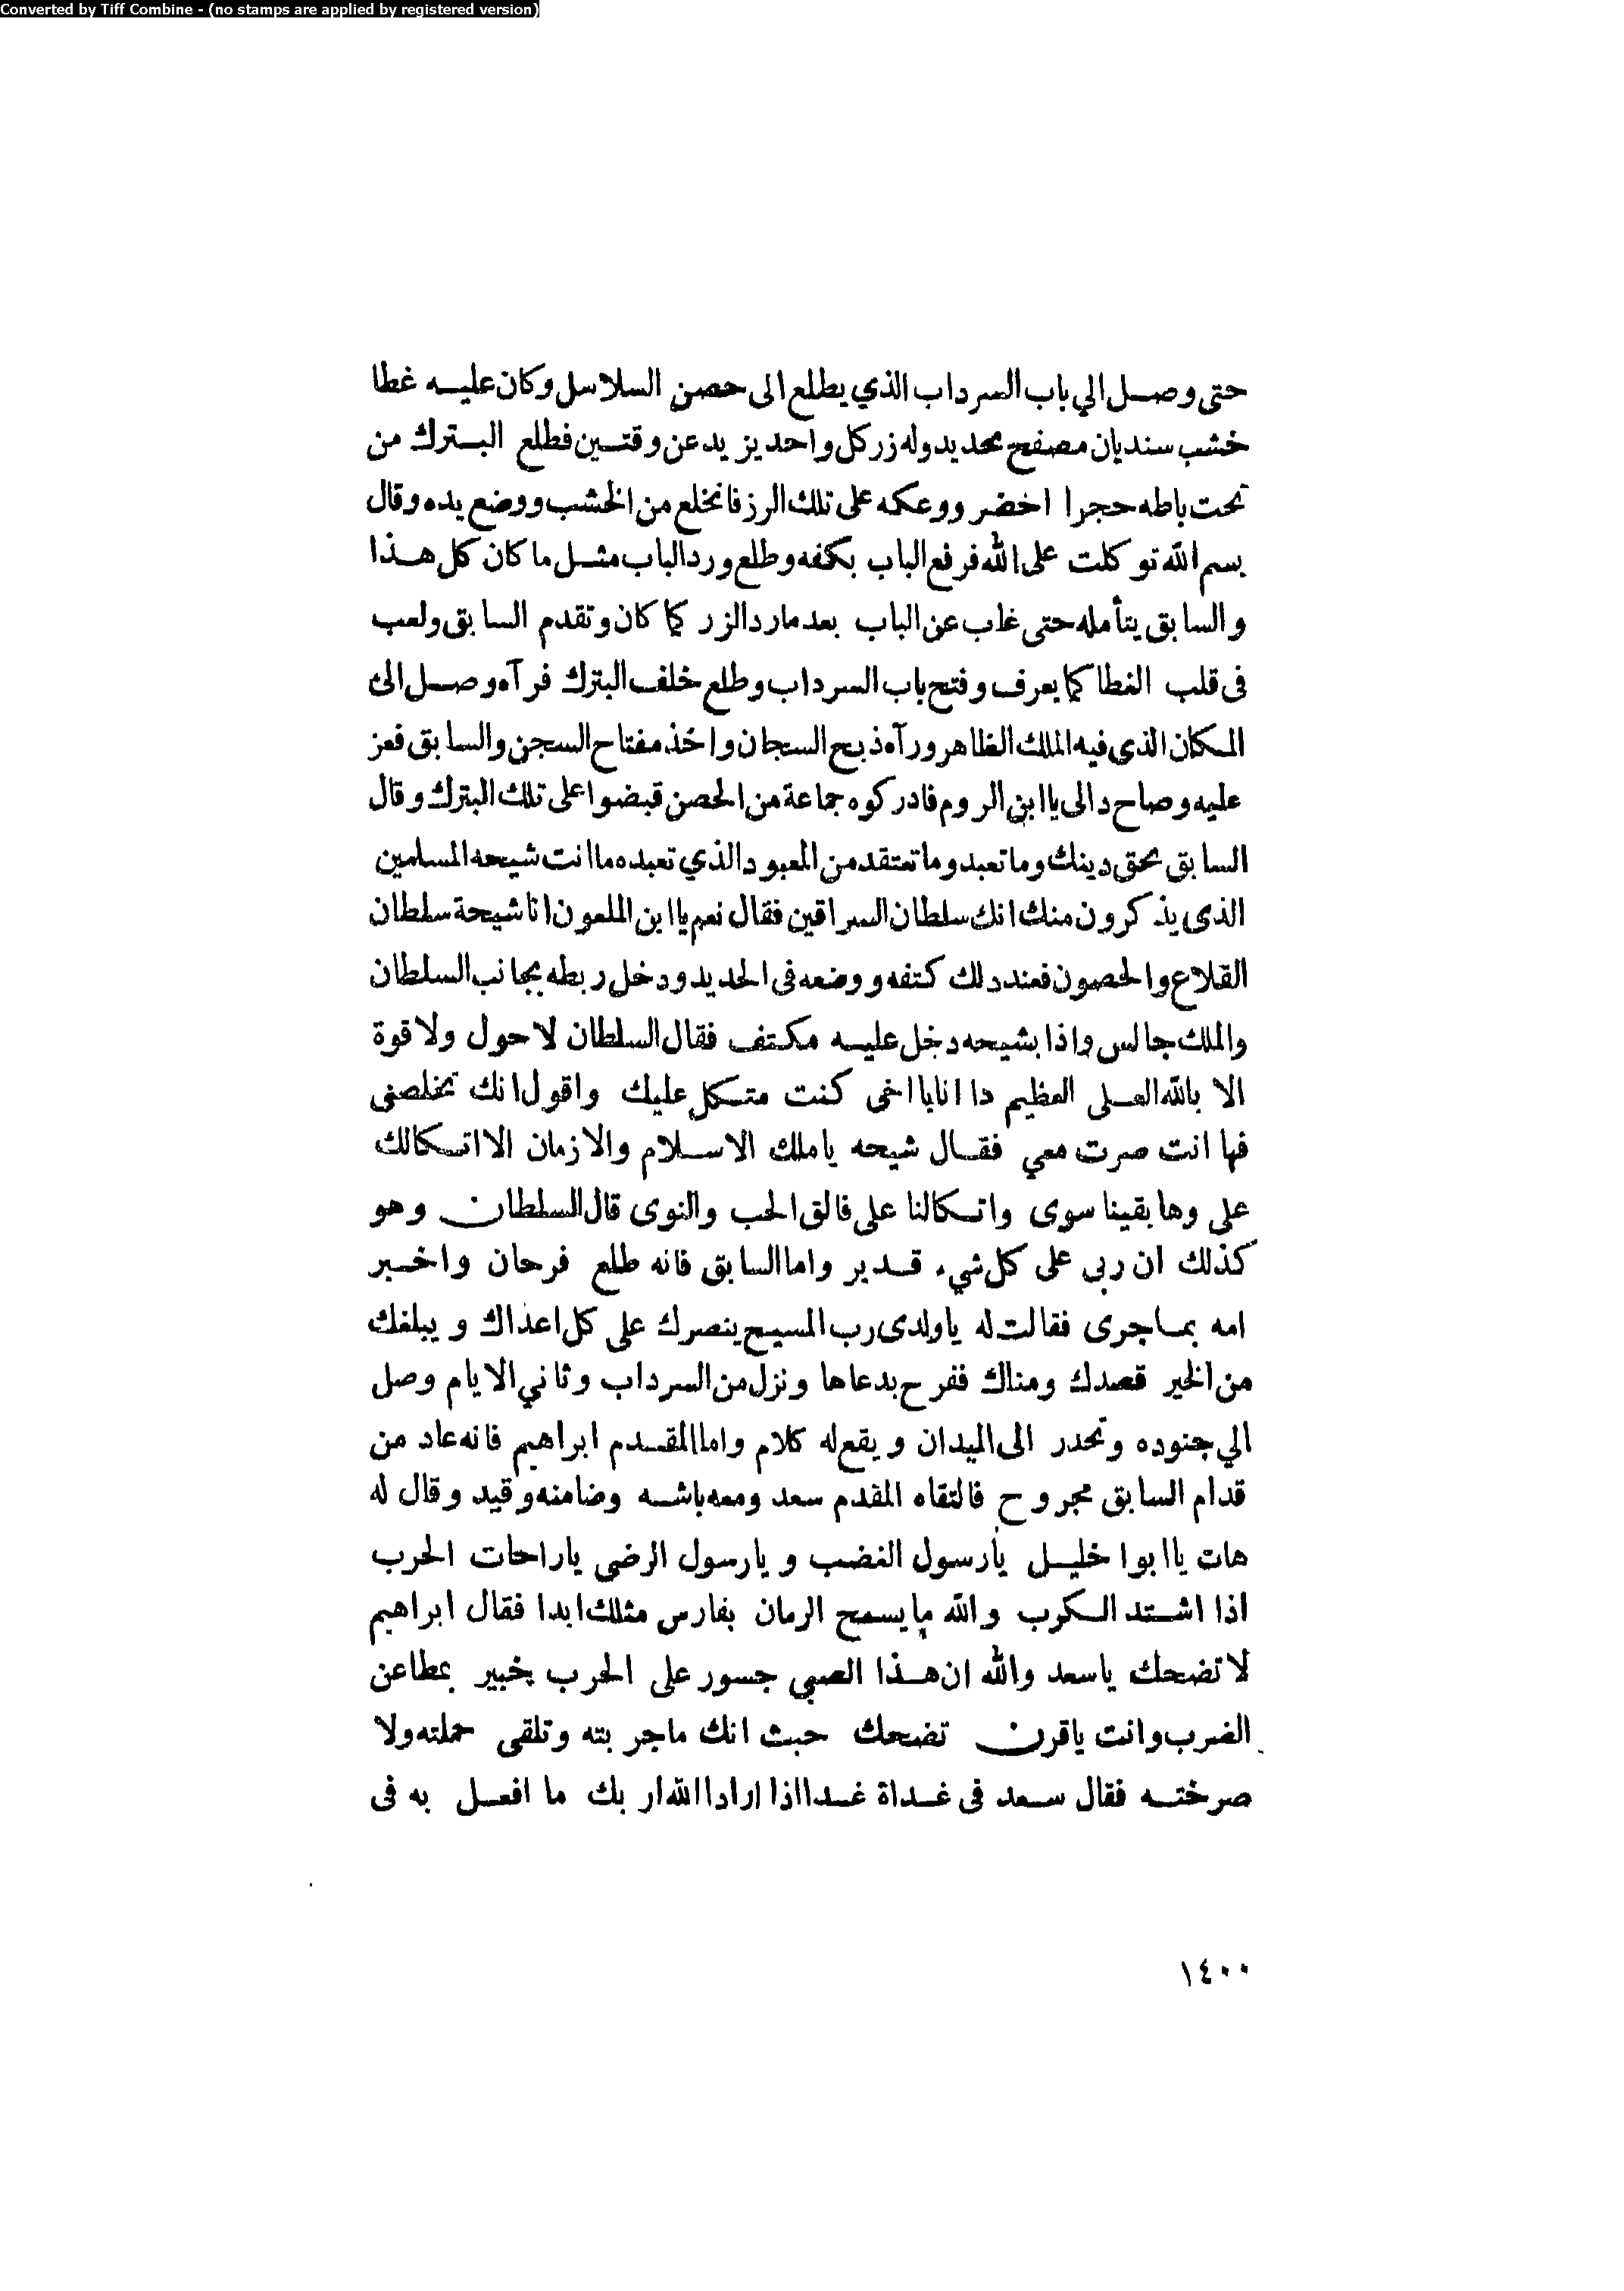 Converted by Tiff Combine - (no stamps are applied by registered version)
حتى وصل الي باب السرداب الذي يطلع الى حصن السلاسل وكان عليه غطا
خشب سنديان مصفح بحديد وله زر كل واحد يزيد عن وقتين فطلع البترك من
تحت باطه حجرا اخضر ووعكه على تلك الرز فانخلع من الخشب ووضع يده وقال
بسم الله توكلت على الله فرفع الباب بكفه وطلع ورد الباب مثل ما كان كل هذا
والسابق يتأمله حتى غاب عن الباب بعد مارد الزر كما كان وتقدم السابق ولعب
فى قلب الغطا كما يعرف وفتح باب السرداب وطلع خلف البترك فرآه وصل الى
المكان الذى فيه الملك الظاهر ورآه ذبح السجان واخذ مفتاح السجن والسابق فعز
عليه وصاح دالى يا ابن الروم فادركوه جماعة من الحصن قبضوا على تلك البترك وقال
السابق بحق دينك وما تعبد وما تعتقد من المعبود الذي تعبده ما انت شيحه المسلمين
الذى يذكرون منك انك سلطان السراقين فقال نعم يا ابن الملعون انا شيحة سلطان
القلاع والحصون فعند دلك كتفه ووضعه فى الحديد ودخل ربطه بجانب السلطان
والملك جالس واذا بشيحه دخل عليه مكتف فقال السلطان لا حول ولا قوة
الا بالله العلى العظيم دا انا يا اخى كنت متكل عليك واقول انك تخلصنى
فها انت صرت معي فقال شيحه يا ملك الاسلام والازمان الا اتكالك
على وها بقينا سوى واتكالنا على فالق الحب والنوى قال السلطان وهو
كذلك ان ربى على كل شيء قدير واما السابق فانه طلع فرحان واخبر
امه بما جرى فقالت له يا ولدى رب المسيح ينصرك على كل اعداك ويبلغك
من الخير قصدك ومناك ففرح بدعاها ونزل من السرداب وثاني الايام وصل
الي جنوده وتحدر الى الميدان ويقع له كلام واما المقدم ابراهيم فانه عاد من
قدام السابق مجروح فالتقاه المقدم سعد ومعه باشه وضامنه وقيد وقال له
هات يا ابوا خليل يارسول الغضب ويارسول الرضى ياراحات الحرب
اذا اشتد الكرب والله ما يسمح الرمان بفارس مثلك ابدا فقال ابراهيم
لا تضحك ياسعد والله ان هذا الصبي جسور على الحرب خبير بمطاعن
الضرب وانت ياقرن تضحك حبث انك ماجربته وتلقى حملته ولا
صرخته فقال سعد فى غداة غدا اذا اراد الله ار بك ما افعل به فى
١٤٠٠